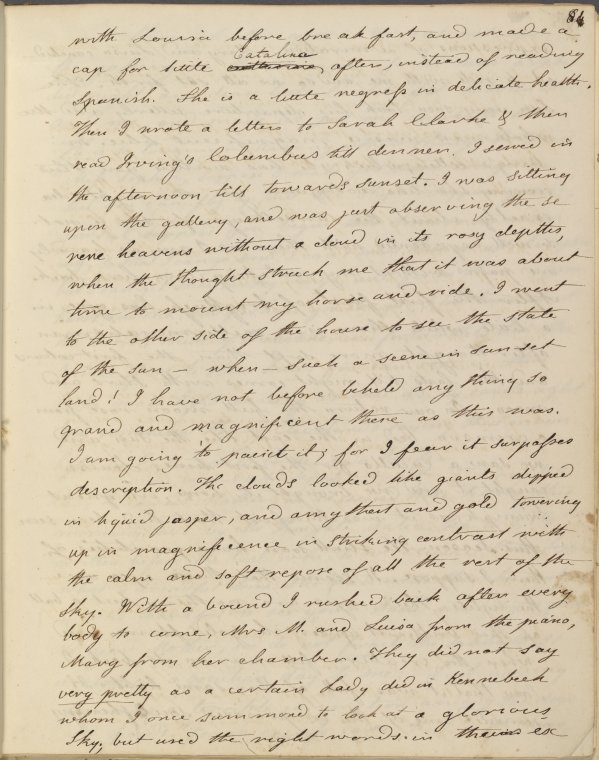 84
with Louisa before breakfast, and made a
cap for little Catalina, after, instead of reading
Spanish. She is a little negress in delicate health.
Then I wrote a letter to Sarah Clarke & then
read Irving's Columbus till dinner. I sewed in
the afternoon till towards sunset. I was sitting
upon the gallery, and was just observing the se
rene heavens without a cloud in its rosy depths,
when the thought struck me that it was about
time to mount my horse and ride. I went
to the other side of the house to see the state
of the sun — when — such a scene in sunset
land! I have not before beheld any thing so
grand and magnificent there as this was.
I am going to paint it; for I fear it surpasses
description. The clouds looked like giants dipped
in liquid jasper, and amythest and gold towering
up in magnificence in striking contrast with
the calm and soft repose of all the rest of the
sky. With a bound I rushed back after every
body to come, Mrs M. and Luisa from the piano,
Mary from her chamber. They did not say
very pretty as a certain Lady did in Kennebeck
whom I once summond to look at a glorious
Sky, but used the right words in their ex